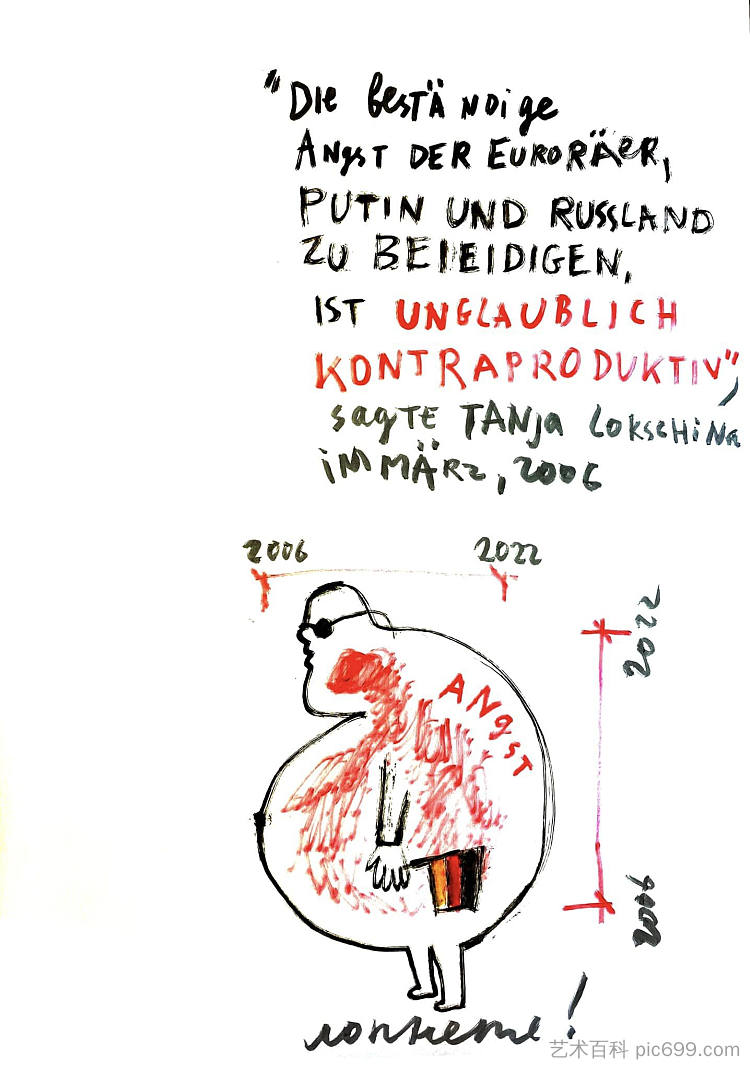 "Die beständige
Angst der Euroräer,
Putin und Russland
zu beleidigen,
ist unglaublich
kontraproduktiv",
sagte Tanja Lokschina
im März, 2006
2006 2022
2022
Angst
2006
лопнете!
艺术百科 pic699.com